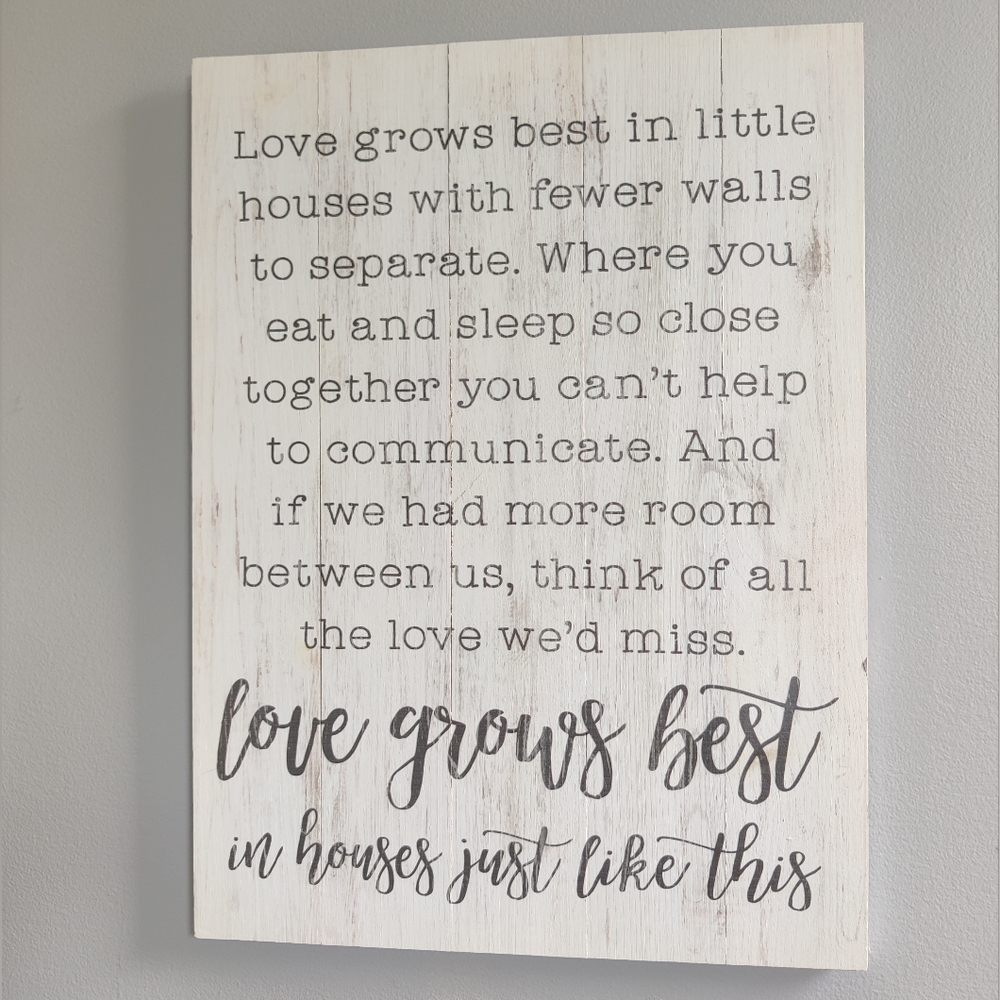 Love grows best in little
houses with fewer walls
to separate. Where you
eat and sleep so close
together you can't help
to communicate. And
if we had more room
between us, think of all
the love we'd miss.
love grows best
in houses just like this